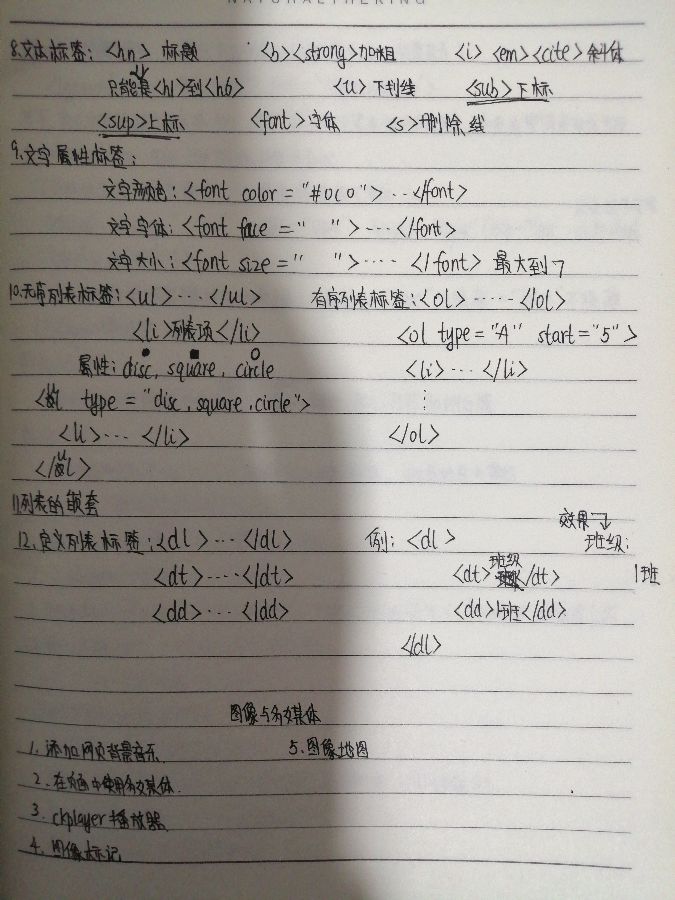 NATURALTHERING
8.文本标签：<hn> 标题 <b><strong>加粗 <i> <em><cite>斜体
只能是<h1>到<h6> <u>下划线 <sub>下标
<sup>上标 <font>字体 <s>删除线
9.文字属性标签：
文字颜色：<font color = "#0c0">...</font>
文字字体：<font face = " ">...</font>
文字大小：<font size = " ">....</font> 最大到7
10.无序列表标签：<ul>...</ul> 有序列表标签：<ol>.....</ol>
<li>列表项</li> <ol type = "A" start = "5">
属性：disc, square, circle <li>...</li>
<ul type = "disc, square, circle"> ⋮
<li>... </li> </ol>
</ul>
11列表的嵌套
12.定义列表标签：<dl>...</dl> 例：<dl> 效果 班级：
<dt>....</dt> <dt>班级</dt> 1班
<dd>...</dd> <dd>1班</dd>
</dl>
图像与多媒体
1. 添加网页背景音乐 5.图像地图
2. 在页面中使用多媒体.
3. ckplayer播放器
4. 图像标记